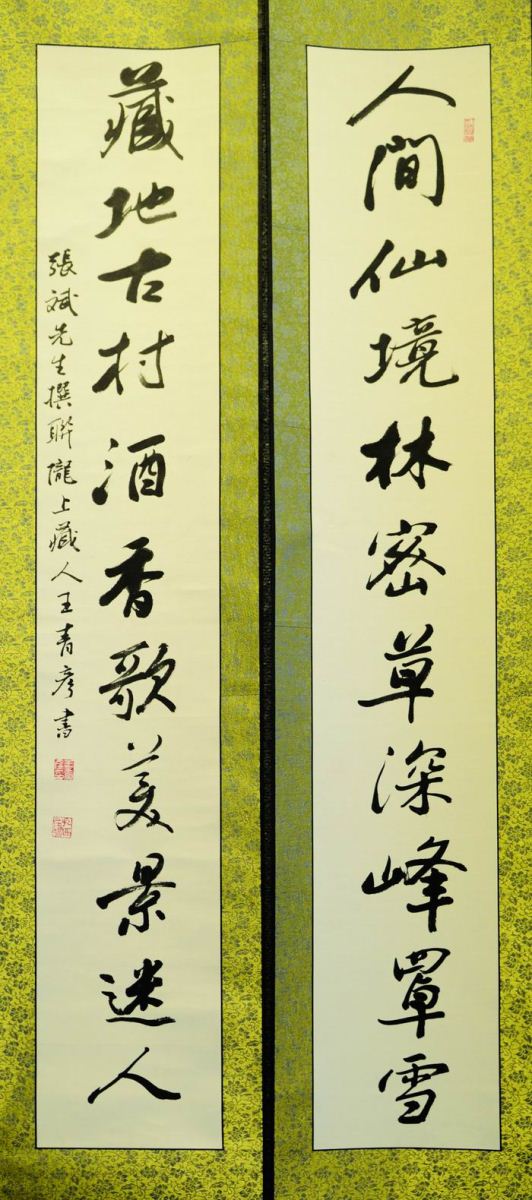 人間仙境林密草深峰罩雪
藏地古村酒香歌美景迷人
張斌先生撰聯隴上藏人王青彦書